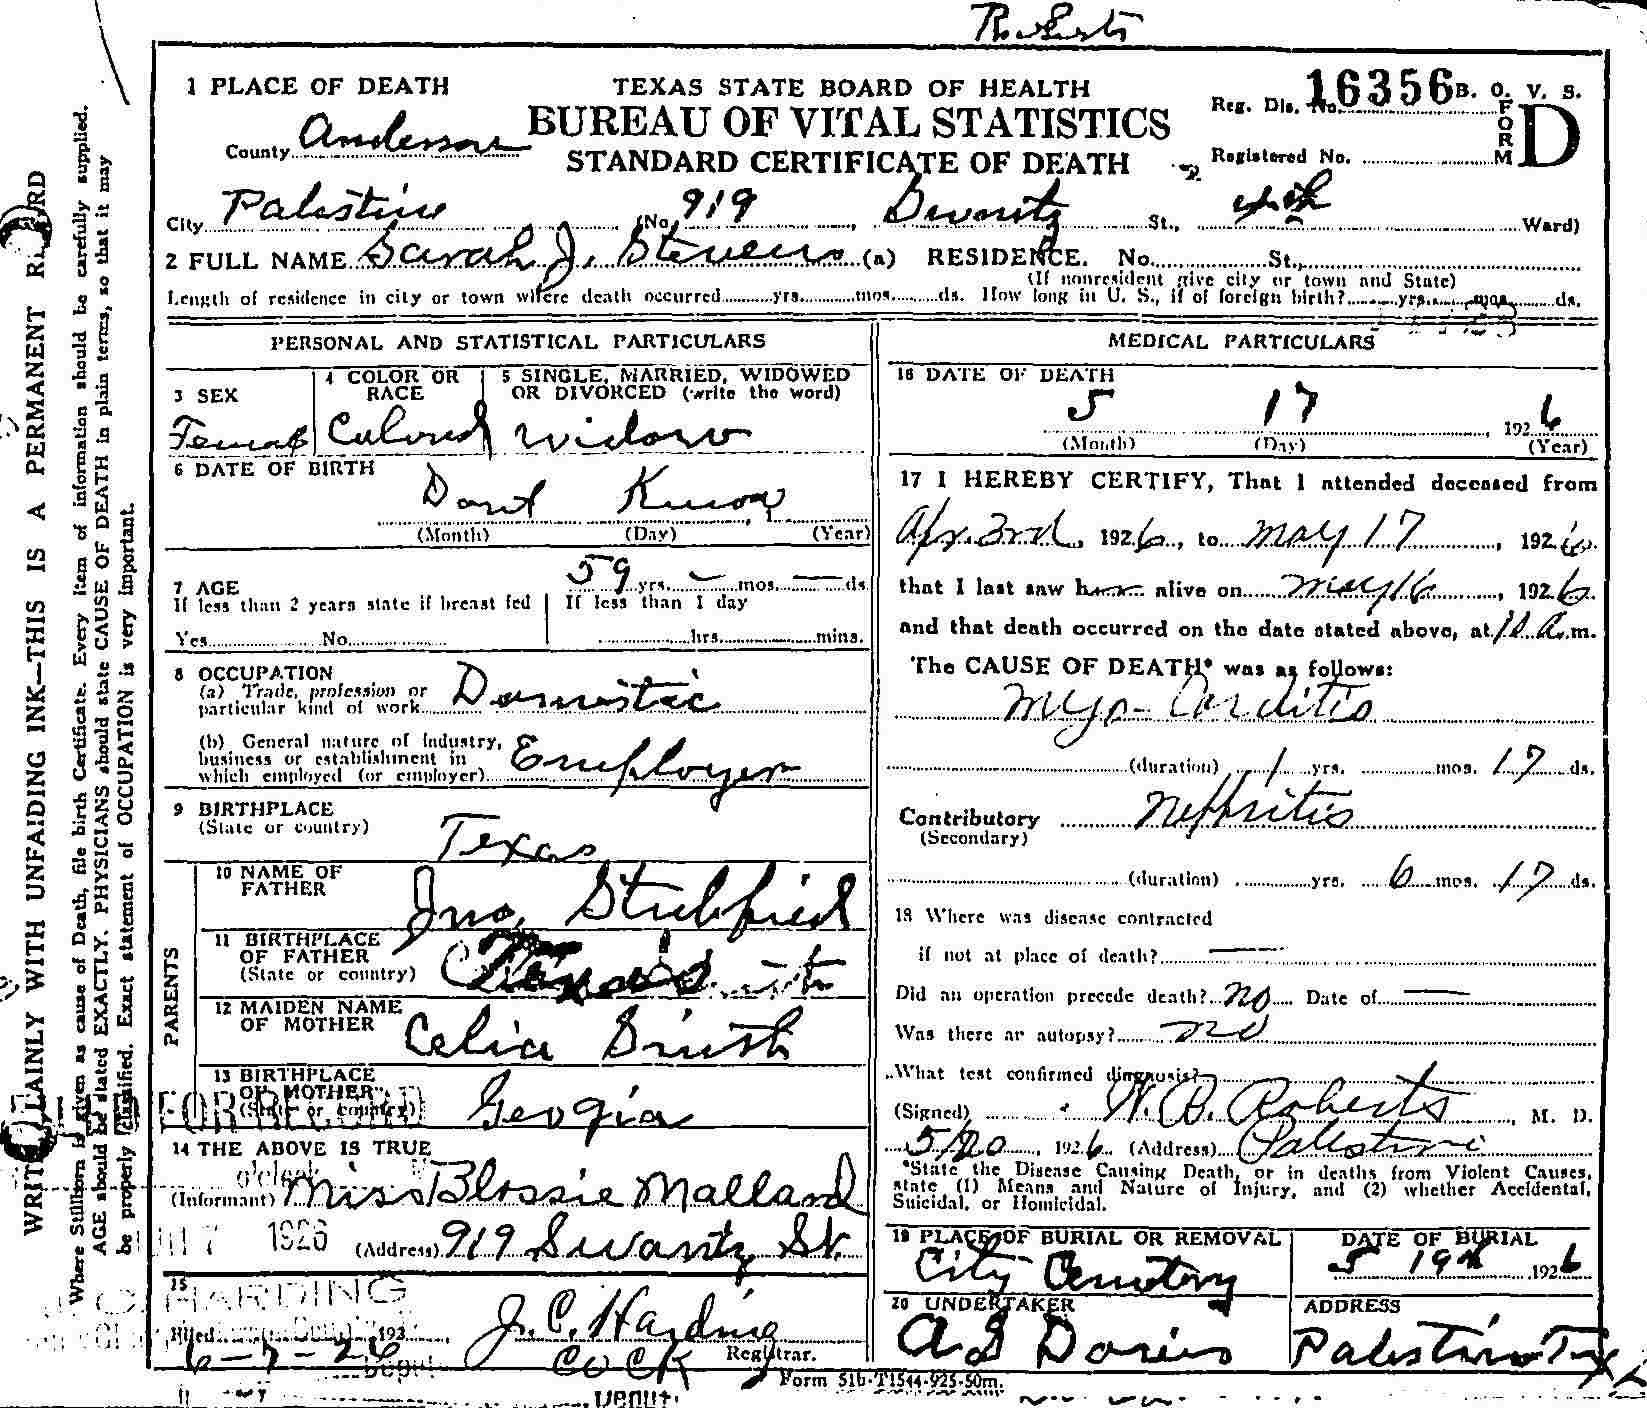 Roberts
1 PLACE OF DEATH
TEXAS STATE BOARD OF HEALTH
BUREAU OF VITAL STATISTICS
STANDARD CERTIFICATE OF DEATH
Reg. Dis. No. 16356 B. O. V. S.
FORM D
County Anderson
Registered No.
City Palestine (No. 919 St., Ward)
2 FULL NAME Sarah J. Stevens (a) RESIDENCE. No. St.,
(If nonresident give city or town and State)
Length of residence in city or town where death occurred yrs. mos. ds. How long in U. S., if of foreign birth? yrs. mos. ds.
PERSONAL AND STATISTICAL PARTICULARS
3 SEX
Female
4 COLOR OR RACE
Colored
5 SINGLE, MARRIED, WIDOWED OR DIVORCED (write the word)
widow
6 DATE OF BIRTH
Dont Know
(Month) (Day) (Year)
7 AGE 59 yrs. — mos. — ds.
If less than 2 years state if breast fed
Yes No
If less than 1 day
hrs. mins.
8 OCCUPATION
(a) Trade, profession or
particular kind of work Domestic
(b) General nature of Industry,
business or establishment in
which employed (or employer) Employer
9 BIRTHPLACE
(State or country)
Texas
PARENTS
10 NAME OF FATHER
Jno.
11 BIRTHPLACE OF FATHER
(State or country)
12 MAIDEN NAME OF MOTHER
Celia Smith
13 BIRTHPLACE OF MOTHER
(State or country)
Geogia
FOR RECORD
14 THE ABOVE IS TRUE
o'clock
(Informant) Miss Blossie Mallard
1926
(Address) 919 Swantz St.
15
J. C. HARDING
Filed 192
6-7-26
J. C. Harding
CO CK Registrar.
MEDICAL PARTICULARS
16 DATE OF DEATH
5 17 1926
(Month) (Day) (Year)
17 I HEREBY CERTIFY, That I attended deceased from
Apr. 3rd, 1926, to May 17, 1926.
that I last saw her alive on May 16, 1926.
and that death occurred on the date stated above, at a.m.
The CAUSE OF DEATH* was as follows:
Myo-Carditis
(duration) 1 yrs. mos. 17 ds.
Contributory Nephritis
(Secondary)
(duration) yrs. 6 mos. 17 ds.
18 Where was disease contracted
if not at place of death? —
Did an operation precede death? No Date of —
Was there an autopsy? no
What test confirmed diagnosis?
(Signed) W. B. Roberts, M. D.
5/20, 1926 (Address) Palestine
*State the Disease Causing Death, or in deaths from Violent Causes,
state (1) Means and Nature of Injury, and (2) whether Accidental,
Suicidal, or Homicidal.
19 PLACE OF BURIAL OR REMOVAL
City Cemetery
DATE OF BURIAL
5 19th 1926
20 UNDERTAKER
ADDRESS
Palestine Tex
Form 51b-T1544-925-50m.
WRITE PLAINLY WITH UNFAIDING INK—THIS IS A PERMANENT RECORD
Where Stillborn is given as cause of Death, file birth Certificate. Every item of information should be carefully supplied.
AGE should be stated EXACTLY. PHYSICIANS should state CAUSE OF DEATH in plain terms, so that it may
be properly classified. Exact statement of OCCUPATION is very important.